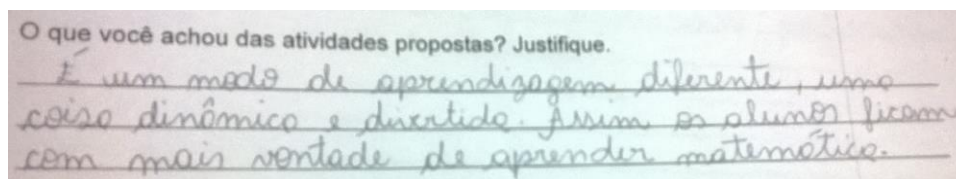 O que você achou das atividades propostas? Justifique.
É um modo de aprendizagem diferente, uma
coisa dinâmica e divertida. Assim os alunos ficam
com mais vontade de aprender matemática.